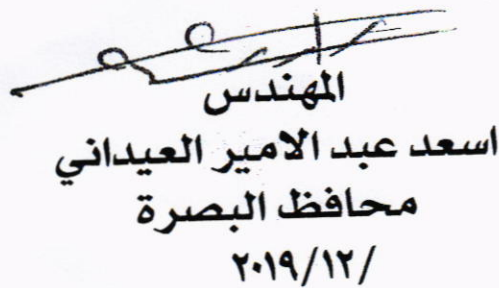 المهندس
اسعد عبد الامير العيداني
محافظ البصرة
/٢٠١٩/١٢